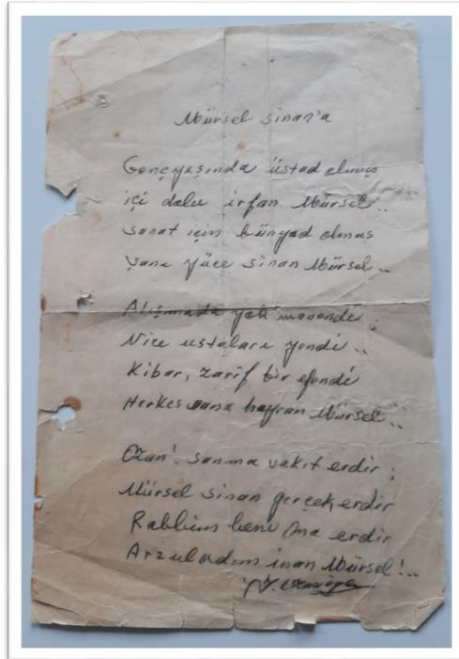 Mürsel Sinan'a
Gençyaşında üstad olmuş
içi dolu irfan Mürsel..
sanat için bünyad olmuş
Şanı yüce Sinan Mürsel..
Atışmada yok manendi
Nice ustaları yendi..
Kibar, zarif bir efendi
Herkes sana hayran Mürsel..
Ozan' sanma vakit erdir
Mürsel Sinan gerçek erdir
Rabbim beni ona erdir
Arzuladım inan Mürsel!..